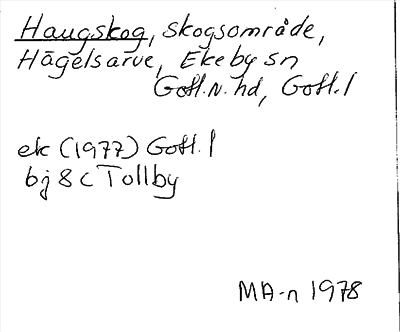 Haugskog, skogsområde,
Hägelsarve, Ekeby sn
Gotl. n. hd, Gotl. l
ek (1977) Gotl. l
bj 8 c Tollby
MA-n 1978